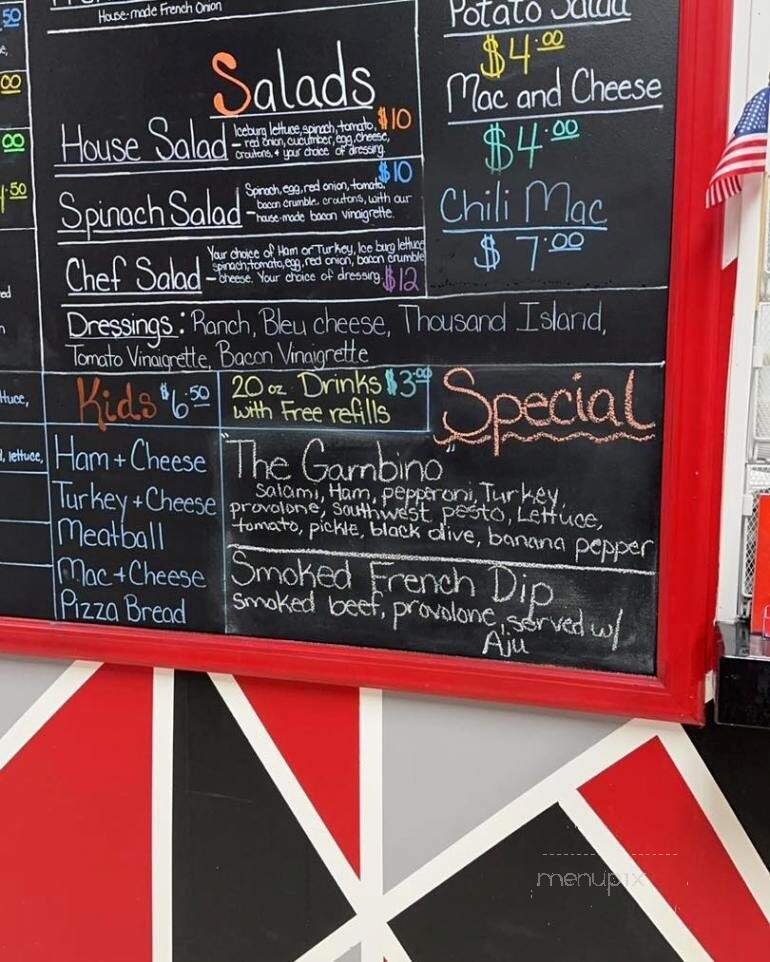 House-made French Onion
Salads
House Salad - Iceburg lettuce, spinach, tomato, $10
red onion, cucumber, egg, cheese,
croutons, + your choice of dressing.
Spinach Salad - Spinach, egg, red onion, tomato, $10
bacon crumble, croutons, with our
house-made bacon vinaigrette.
Chef Salad - Your choice of Ham or Turkey, Ice burg lettuce
spinach, tomato, egg, red onion, bacon crumble
cheese. Your choice of dressing. $12
Dressings: Ranch, Bleu cheese, Thousand Island,
Tomato Vinaigrette, Bacon Vinaigrette
Potato Salad
$4.00
Mac and Cheese
$4.00
Chili Mac
$7.00
.50
.00
.00
.50
lettuce,
Kids $6.50
Ham + Cheese
Turkey + Cheese
Meatball
Mac + Cheese
Pizza Bread
20 oz. Drinks $3.00
with Free refills
Special
"The Gambino"
Salami, Ham, pepperoni, Turkey,
provalone, Southwest pesto, Lettuce,
tomato, pickle, black olive, banana pepper
Smoked French Dip
Smoked beef, provalone, served w/
Aju
menupix